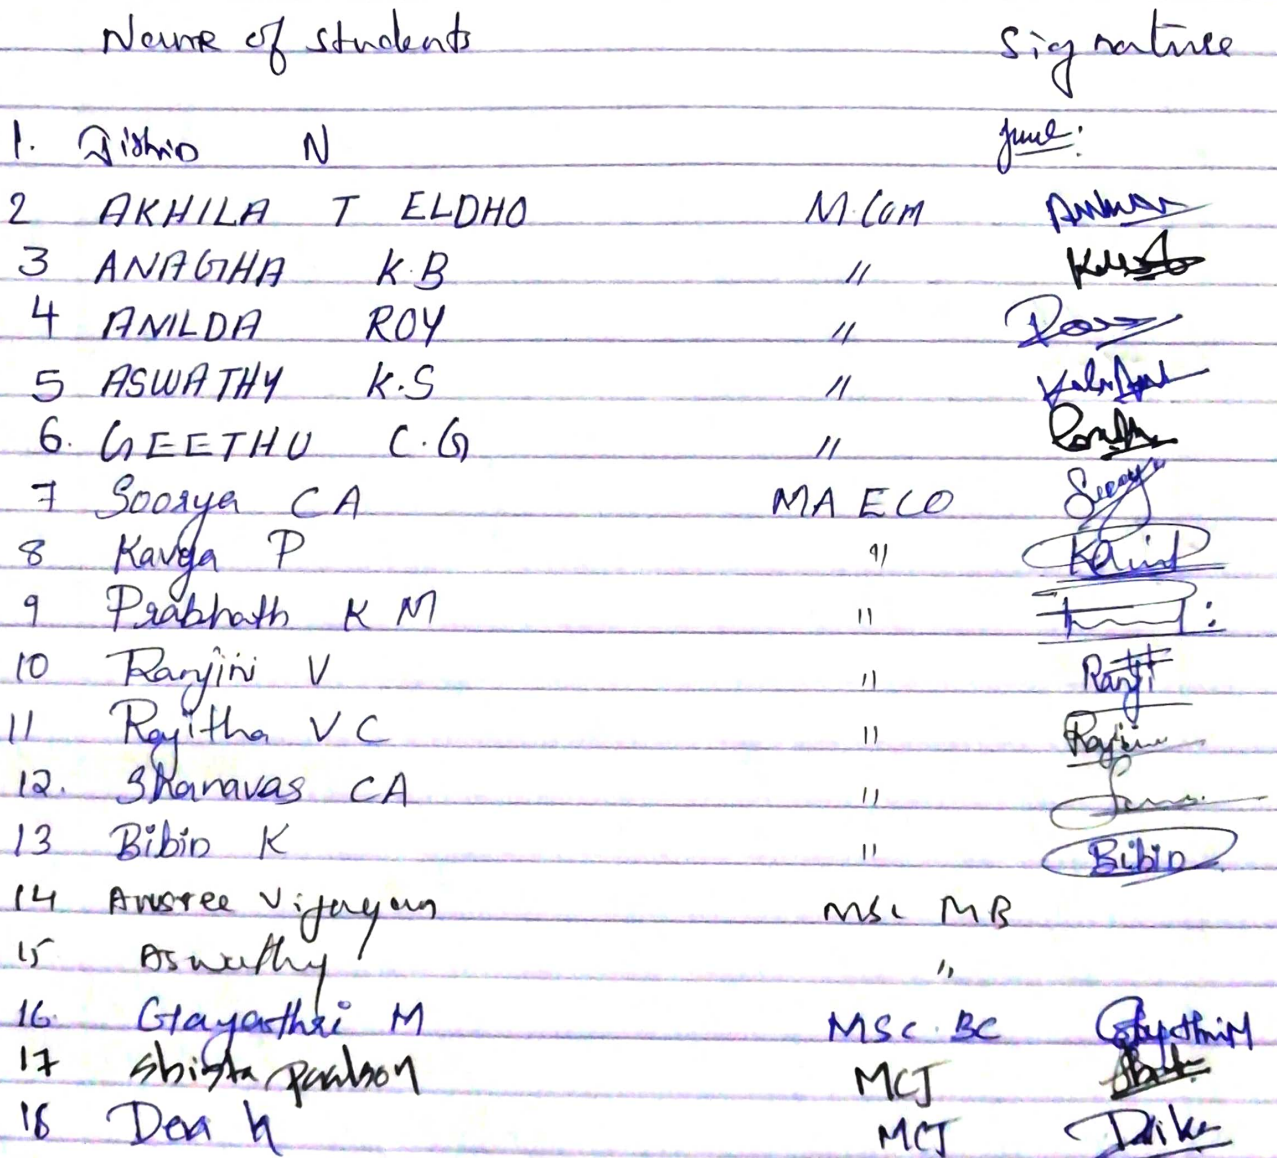 Name of students Signature
1. Jishin N
2 AKHILA T ELDHO M.Com
3 ANAGHA K.B "
4 ANILDA ROY "
5 ASWATHY K.S "
6. GEETHU C.G "
7 Soorya CA MA ECO
8 Kavya P "
9 Prabhath K M "
10 Ranjini V "
11 Rajitha V C "
12. Shanavas CA "
13 Bibin K " Bibin
14 Anusree Vijayan MSc MB
15 Aswathy "
16. Gayathri M MSc. BC Gayathri M
17 Shista Paulson MCJ
18 Dea MCJ